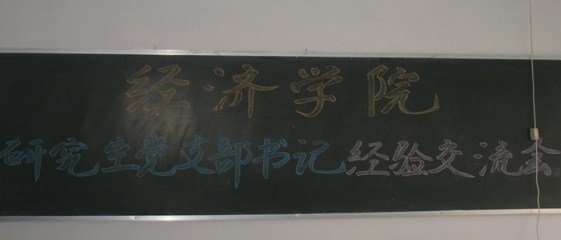 经济学院
研究生党支部书记经验交流会